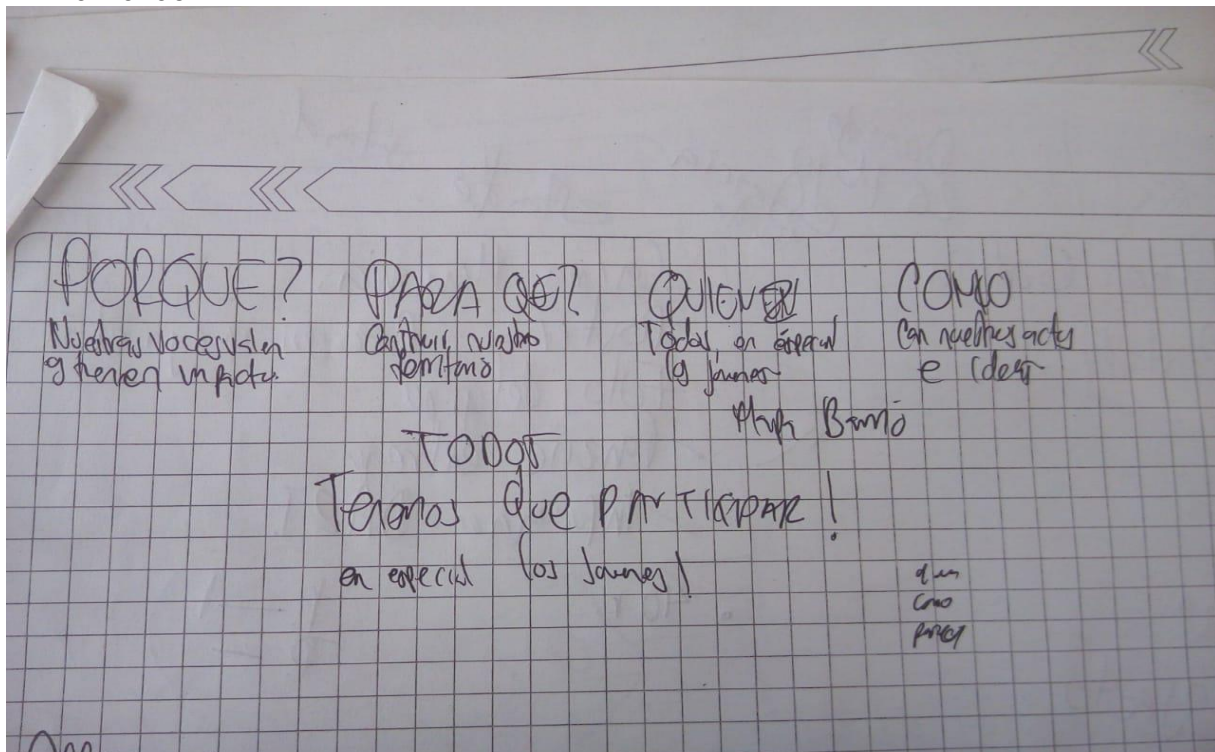 PORQUE?
Nuestras voces valen
y tienen impacto.
PARA QE?
Construir nuestro
territorio
QUIENES
Todos, en especial
los jovenes
Barrio
COMO
Con nuestros actos
e ideas
TODOS
Tenemos que PARTICIPAR!
en especial los Jovenes!
quien
como